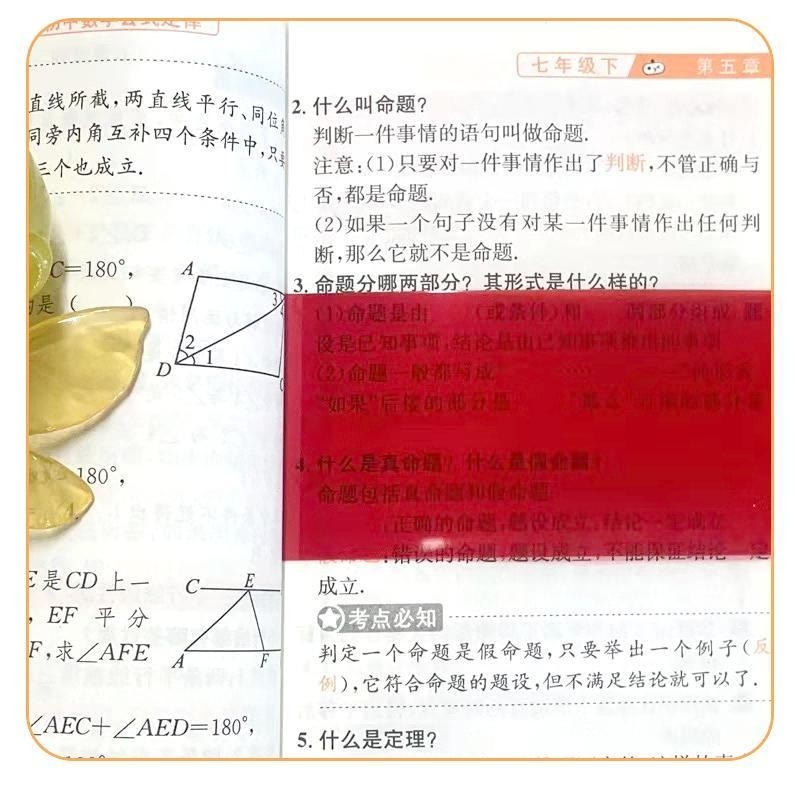 初中数学公式定律
直线所截,两直线平行、同位
同旁内角互补四个条件中,只
三个也成立.
C=180°,
是(  )
A
3
2
1
D
180°,
E是CD上一
,EF 平分
F,求∠AFE
C
E
A
F
∠AEC+∠AED=180°,
七年级下
第五章
2.什么叫命题?
判断一件事情的语句叫做命题.
注意:(1)只要对一件事情作出了判断,不管正确与
否,都是命题.
(2)如果一个句子没有对某一件事情作出任何判
断,那么它就不是命题.
3.命题分哪两部分?其形式是什么样的?
(1)命题是由 (或条件)和 两部分组成.题
设是已知事项,结论是由已知事项推出的事项
(2)命题一般都写成
“如果”后接的部分是
4.什么是真命题?什么是假命题?
命题包括真命题和假命题
:正确的命题,题设成立,结论一定成立
:错误的命题,题设成立,不能保证结论一定
成立.
考点必知
判定一个命题是假命题,只要举出一个例子(反
例),它符合命题的题设,但不满足结论就可以了.
5.什么是定理?